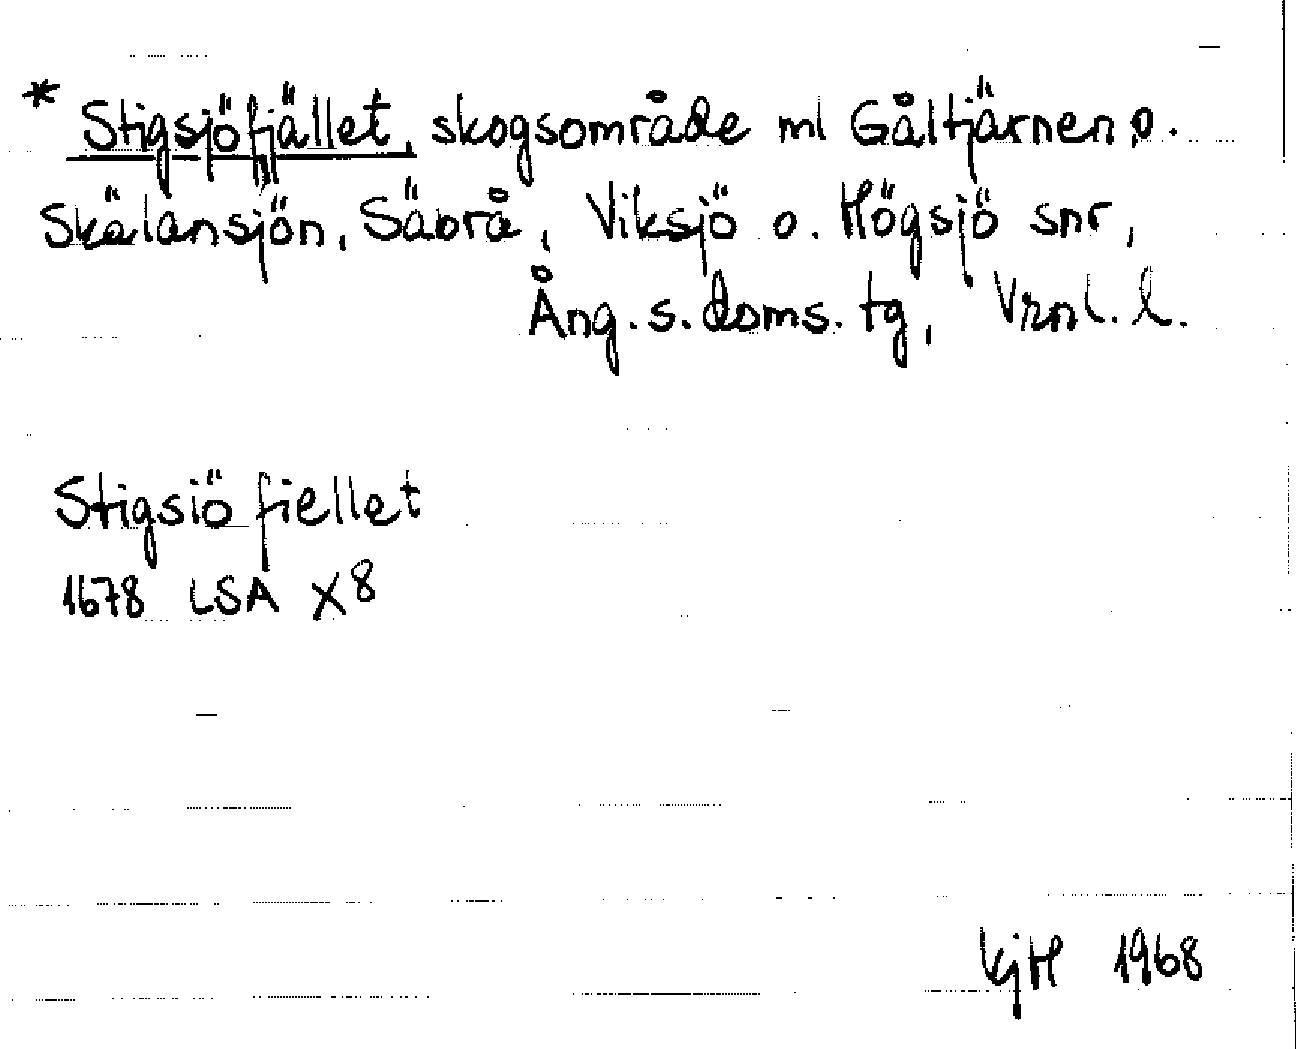 * Stigsjöfjället, skogsområde ml Gåltjärnen o.
Skälånsjön, Säbrå, Viksjö o. Högsjö snr,
Ång. s. doms. tg, Vrnl. l.
Stigsiö fiellet
1678 LSA X8
KjH 1968